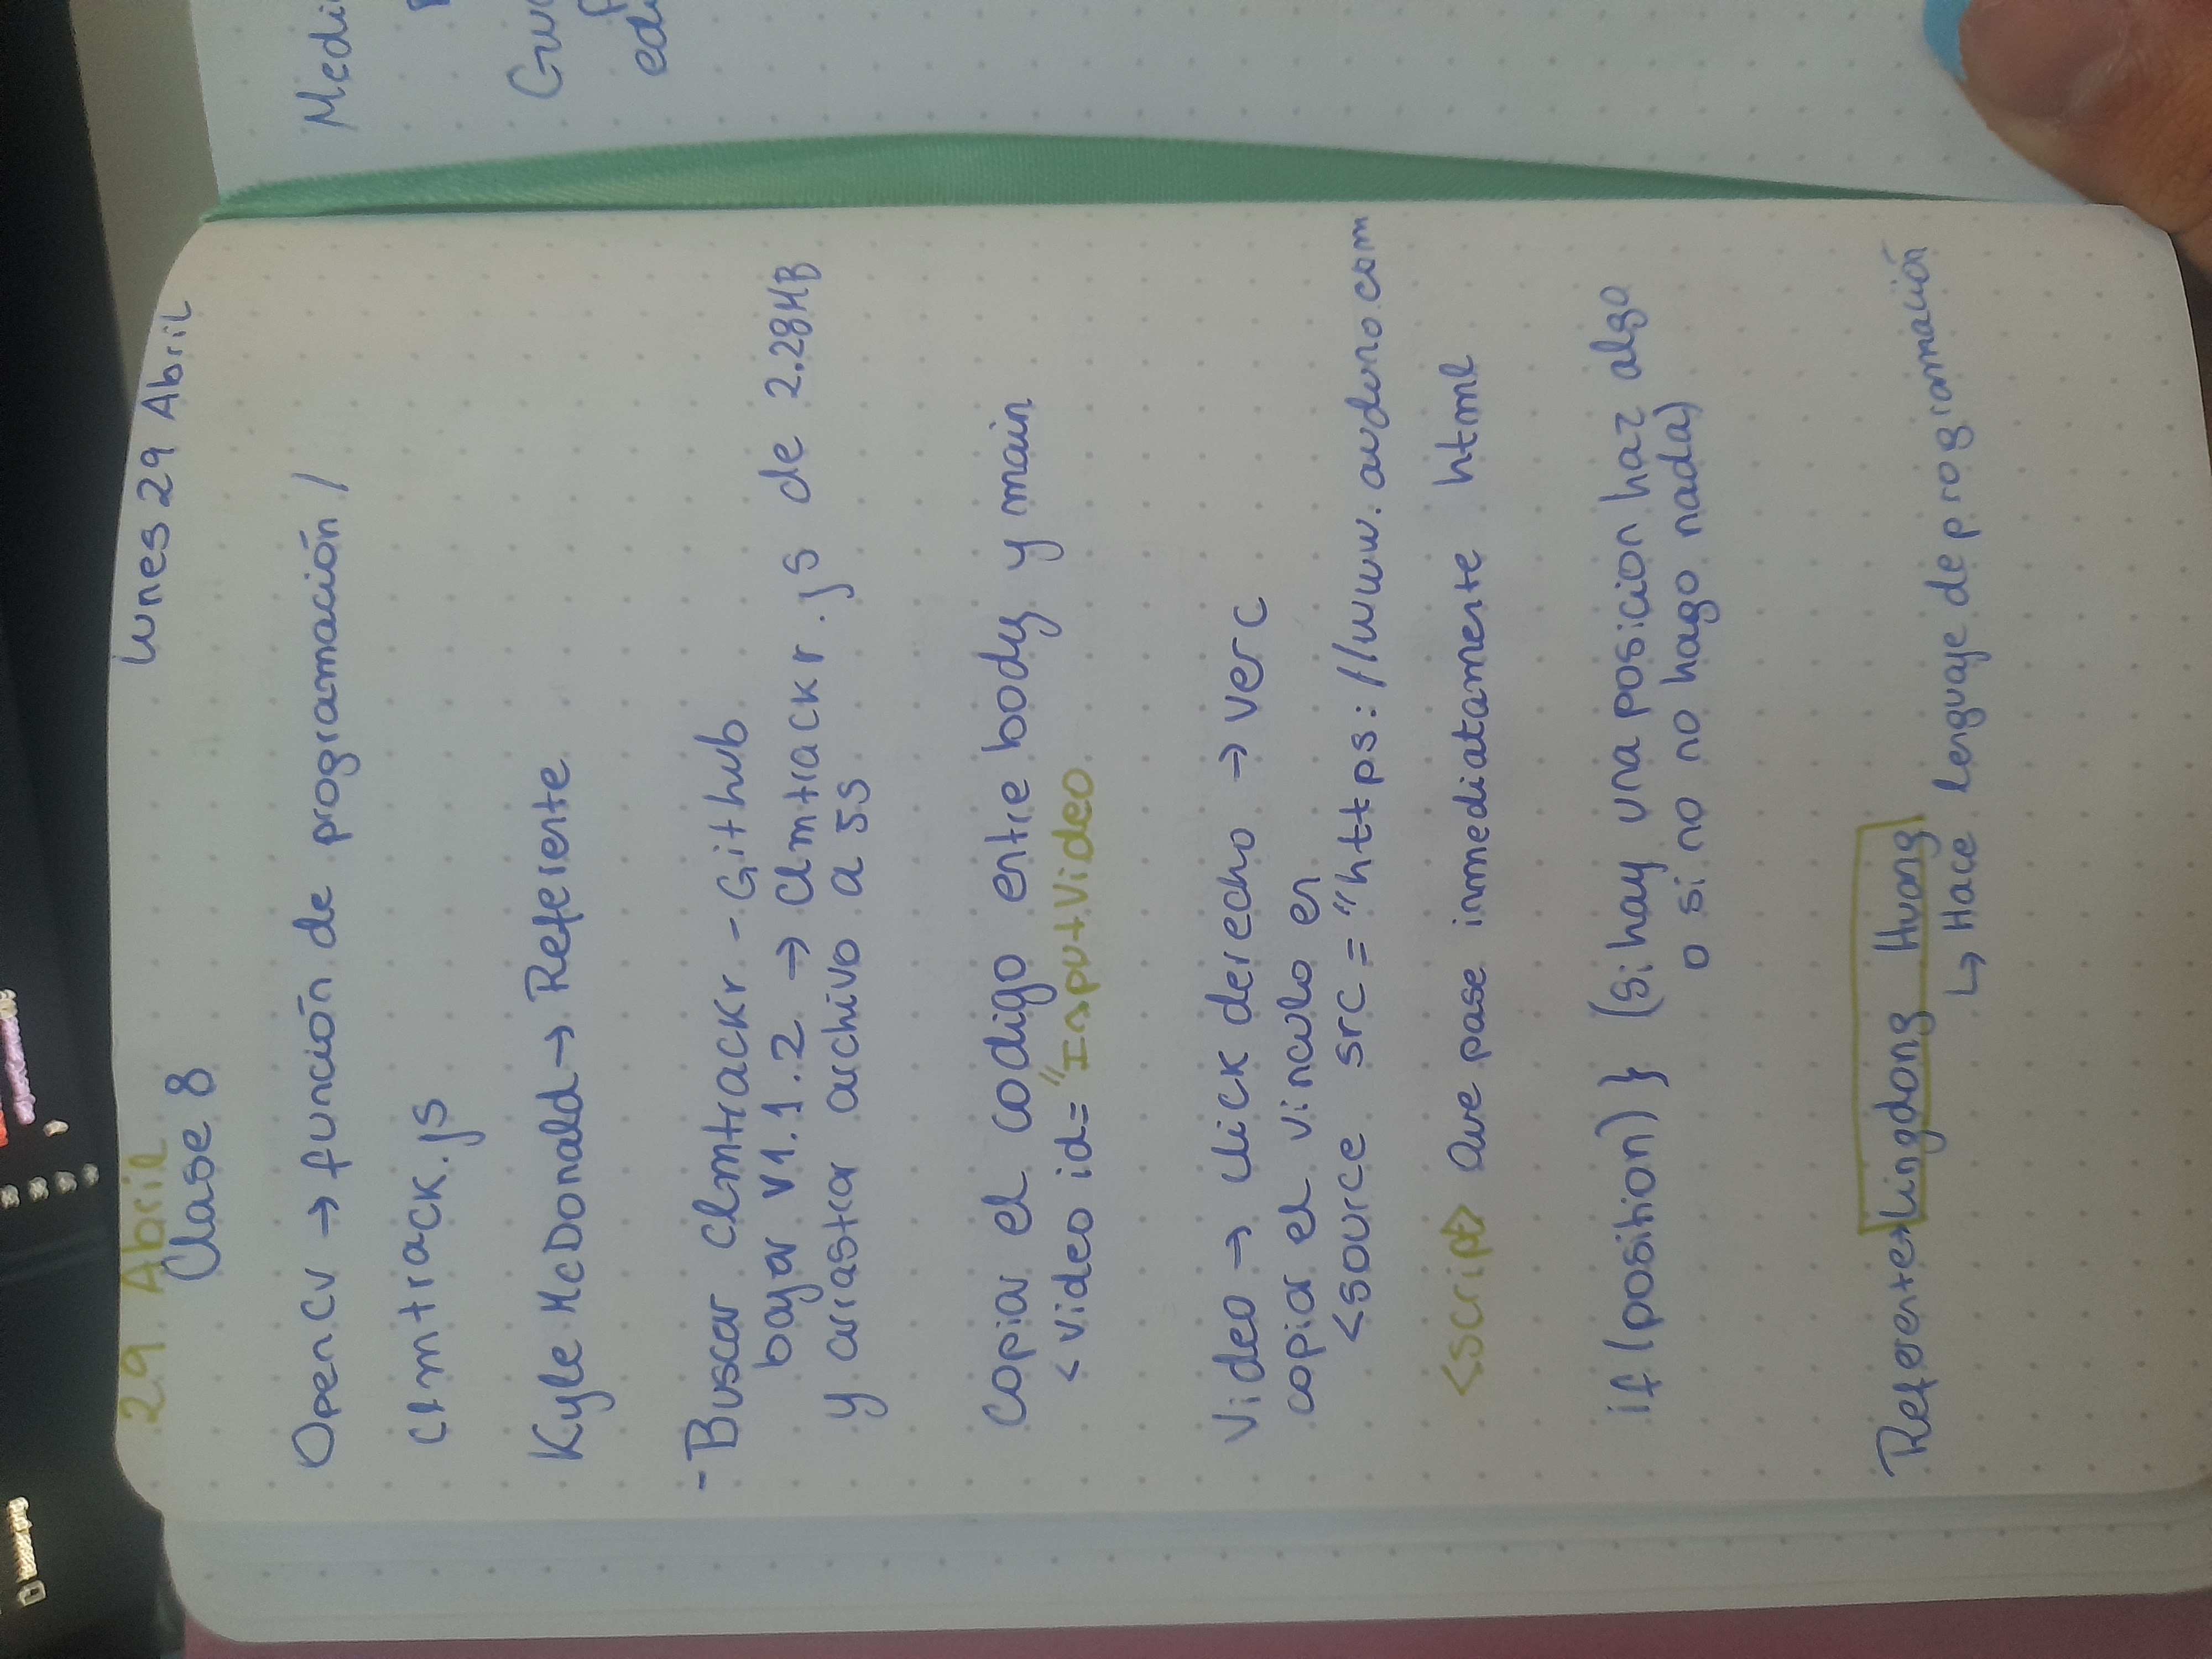 29 Abril
Lunes 29 Abril
Clase 8
OpenCV → función de programación /
clmtrack.js
Kyle McDonald → Referente
- Buscar clmtrackr - Github
bajar V1.1.2 → clmtrackr.js de 2.28MB
y arrastrar archivo a JS
copiar el codigo entre body y main
<video id= "InputVideo
Video → click derecho → ver c
copiar el vinculo en
<source src = "https://www.auduno.com
<script> Que pase inmediatamente html
if (position) } (Si hay una posicion haz algo
o si no no hago nada)
Referente → Lingdong Huang
↳ Hace lenguaje de programación
Medi
ed